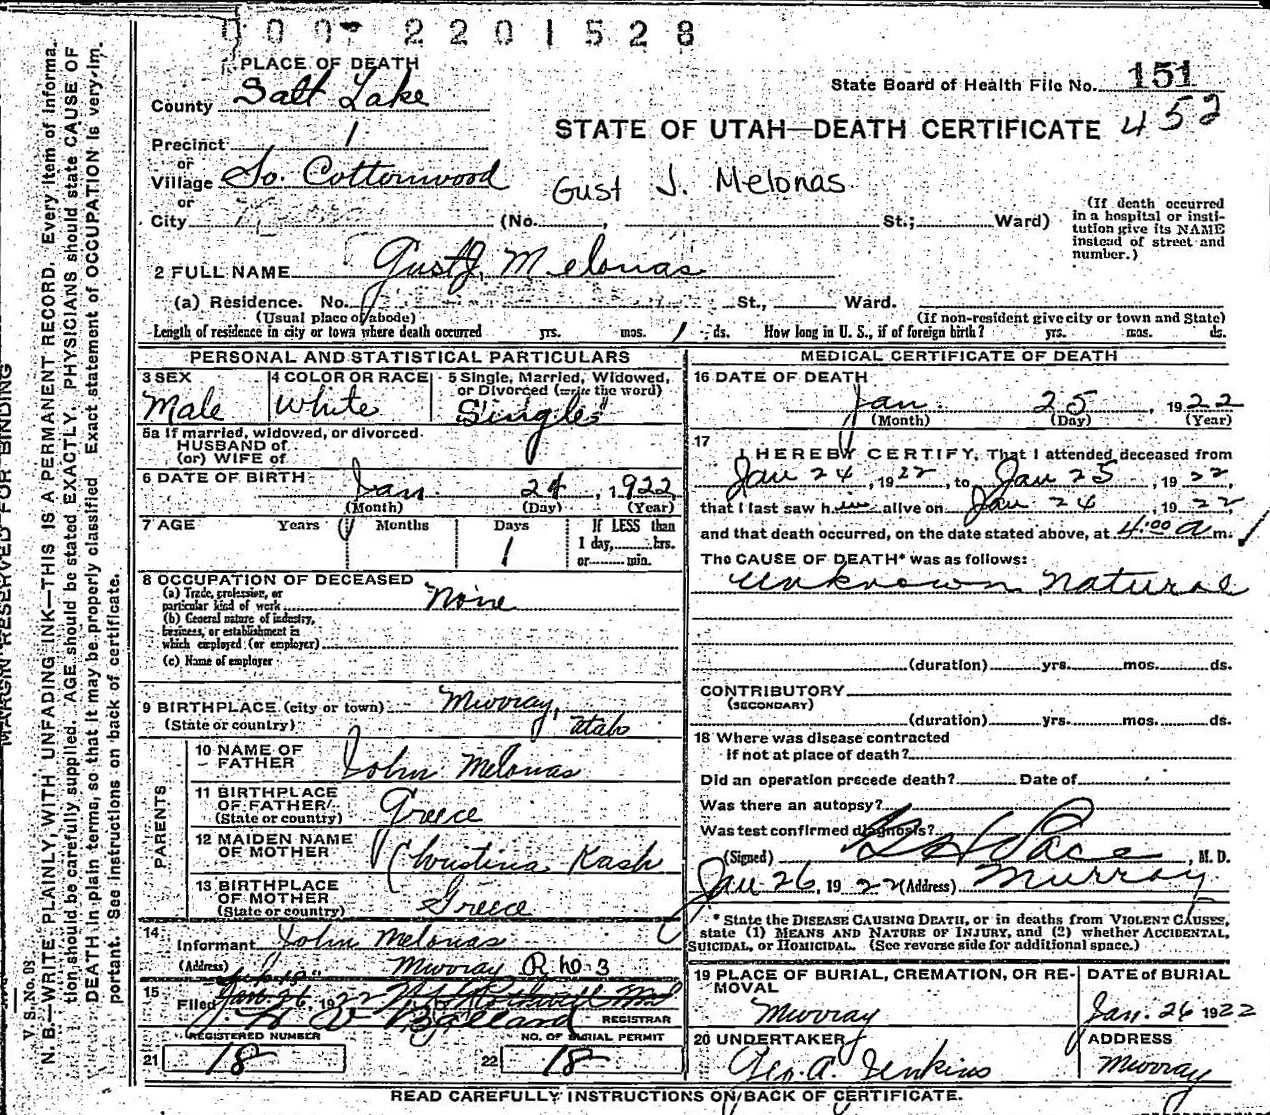 000-2201528
PLACE OF DEATH
County Salt Lake
State Board of Health File No. 151
Precinct 1
STATE OF UTAH—DEATH CERTIFICATE 452
or
Village So. Cottonwood
Gust J. Melonas
or
City (No. , St.; Ward)
(If death occurred
in a hospital or insti-
tution give its NAME
instead of street and
number.)
2 FULL NAME Gust J. Melonas
(a) Residence. No. St., Ward.
(Usual place of abode)
(If non-resident give city or town and State)
Length of residence in city or town where death occurred yrs. mos. 1 ds. How long in U. S., if of foreign birth? yrs. mos. ds.
PERSONAL AND STATISTICAL PARTICULARS
3 SEX
Male
4 COLOR OR RACE
White
5 Single, Married, Widowed,
or Divorced (write the word)
Single
5a If married, widowed, or divorced
HUSBAND of
(or) WIFE of
6 DATE OF BIRTH Jan. 24, 1922
(Month) (Day) (Year)
7 AGE Years Months Days
1
If LESS than
1 day, hrs.
or min.
8 OCCUPATION OF DECEASED
(a) Trade, profession, or
particular kind of work None
(b) General nature of industry,
business, or establishment in
which employed (or employer)
(c) Name of employer
9 BIRTHPLACE (city or town) Murray,
(State or country) Utah
PARENTS
10 NAME OF
FATHER John Melonas
11 BIRTHPLACE
OF FATHER
(State or country) Greece
12 MAIDEN NAME
OF MOTHER Christina Kash
13 BIRTHPLACE
OF MOTHER
(State or country) Greece
14
Informant John Melonas
(Address) Murray R no. 3
15
Filed Jan 26, 1922
Ballard REGISTRAR
REGISTERED NUMBER
21 18
NO. OF BURIAL PERMIT
22 18
MEDICAL CERTIFICATE OF DEATH
16 DATE OF DEATH
Jan. 25, 1922
(Month) (Day) (Year)
17
I HEREBY CERTIFY, That I attended deceased from
Jan 24, 1922, to Jan 25, 1922,
that I last saw him alive on Jan 24, 1922,
and that death occurred, on the date stated above, at 4:00 a m.
The CAUSE OF DEATH* was as follows:
Unknown Natural
(duration) yrs. mos. ds.
CONTRIBUTORY
(SECONDARY)
(duration) yrs. mos. ds.
18 Where was disease contracted
if not at place of death?
Did an operation precede death? Date of
Was there an autopsy?
Was test confirmed diagnosis?
(Signed) Pace, M. D.
Jan 26, 1922 (Address) Murray
* State the DISEASE CAUSING DEATH, or in deaths from VIOLENT CAUSES,
state (1) MEANS AND NATURE OF INJURY, and (2) whether ACCIDENTAL,
SUICIDAL, or HOMICIDAL. (See reverse side for additional space.)
19 PLACE OF BURIAL, CREMATION, OR RE-
MOVAL
Murray
DATE OF BURIAL
Jan. 26 1922
20 UNDERTAKER
Geo. A. Jenkins
ADDRESS
Murray
READ CAREFULLY INSTRUCTIONS ON BACK OF CERTIFICATE.
MARGIN RESERVED FOR BINDING
V. S. No.
N. B.—WRITE PLAINLY, WITH UNFADING INK—THIS IS A PERMANENT RECORD. Every item of informa-
tion should be carefully supplied. AGE should be stated EXACTLY. PHYSICIANS should state CAUSE OF
DEATH in plain terms, so that it may be properly classified. Exact statement of OCCUPATION is very im-
portant. See instructions on back of certificate.